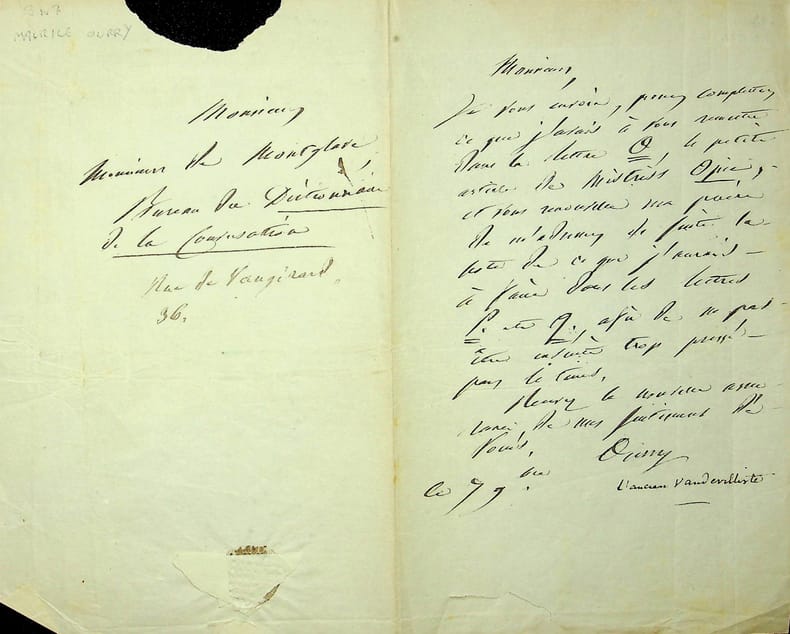 MAURICE OURRY
Monsieur
Monsieur de Montglave,
Bureau du Dictionnaire
de la Conversation
Rue de Vaugirard,
36.
Monsieur,
Je vous envoie, pour completter
ce que j'avais à vous remettre
dans la lettre O, le petit
article de Mistriss Opie,
et vous renouveller ma prière
de m'adresser de suite la
liste de ce que j'aurais
à faire dans les lettres
P. et Q., afin de ne pas
être ensuite trop pressé
pour le tems.
la nouvelle assu-
rance de mes sentimens dé-
voués,
Ourry
L'ancien Vaudevilliste
le 7 9.bre